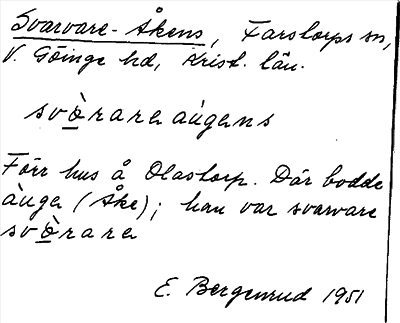 Svarvare-Åkens, Farstorps sn,
V. Göinge hd, Krist. län.
svò̲rareaúgens
Förr hus å Olastorp. Där bodde
àuge (Åke); han var svarvare
svò̲rare
E. Bergenrud 1951